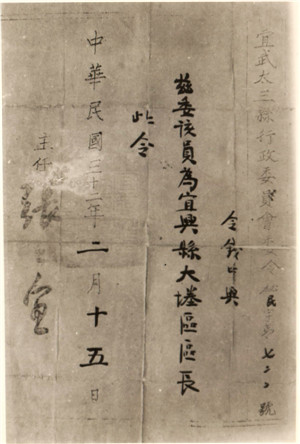 宜武太三縣行政委員會委令民字第七二二號
令錢興
茲委該員為宜興縣大塍區區長
此令
中華民國三十二年二月十五日
主任 張宜